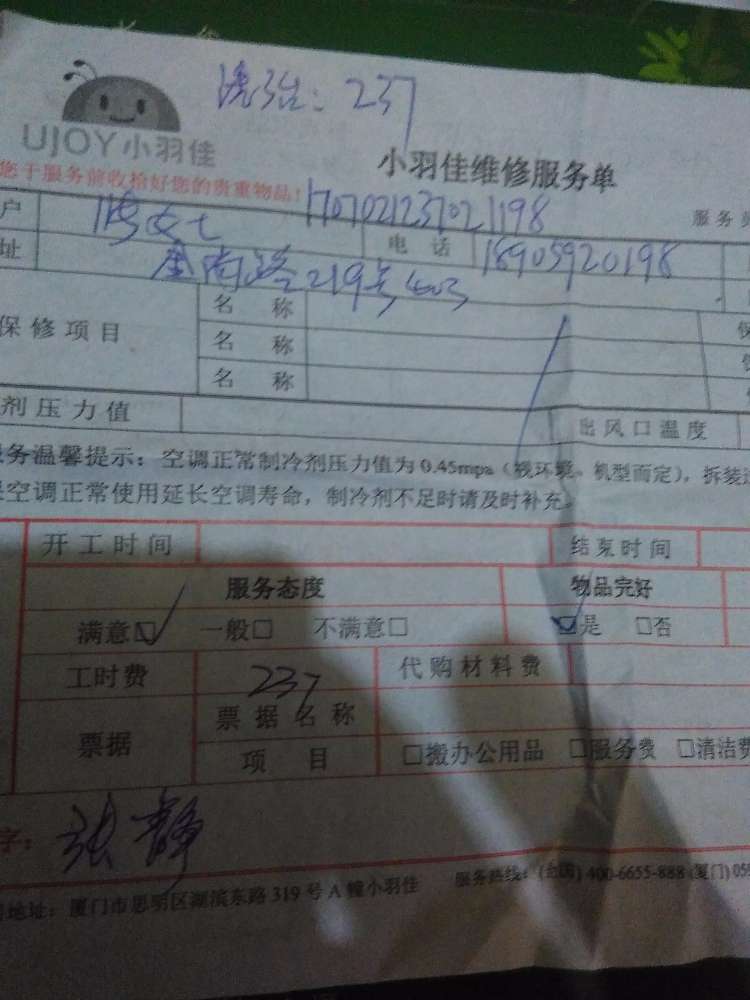 237
UJOY小羽佳
小羽佳维修服务单
您于服务前收拾好您的贵重物品!
1707021237021198
服务
户
电 话 18905920198
址 219号
保修项目
名 称
名 称
名 称
剂压力值
出风口温度
务温馨提示:空调正常制冷剂压力值为0.45mpa(视环境、机型而定),拆装
空调正常使用延长空调寿命,制冷剂不足时请及时补充。
开工时间 结束时间
服务态度 物品完好
满意☑ 一般□ 不满意□ ☑是 □否
工时费 237 代购材料费
票据 票据名称
项 目 □搬办公用品 □服务费 □清洁费
字: 张静
地址:厦门市思明区湖滨东路319号A幢小羽佳 服务热线:(全国)400-6655-888(厦门)